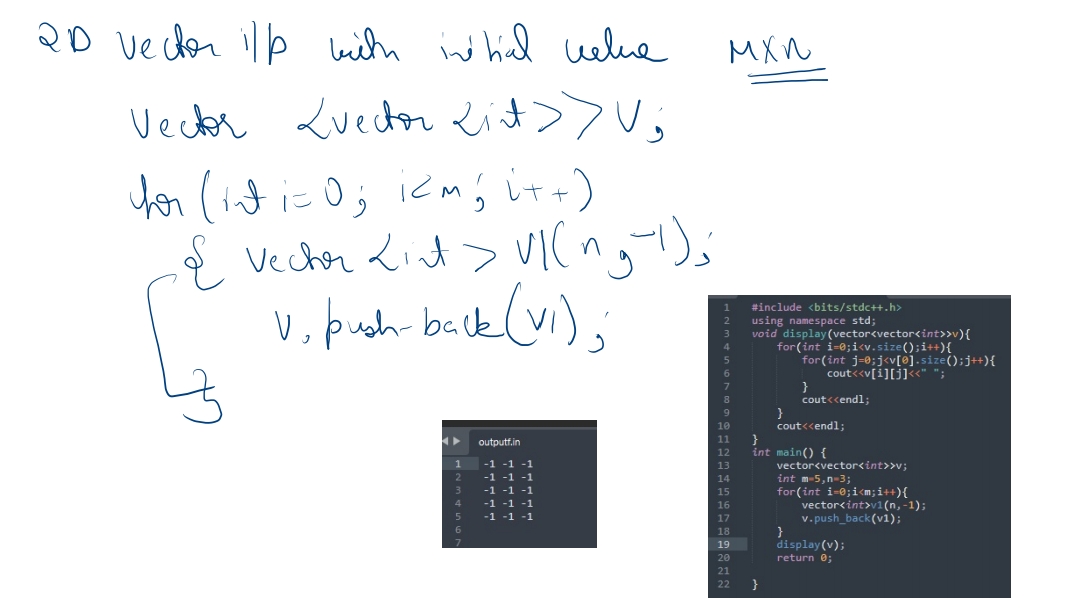 2D vector i/p with initial value mxn
vector <vector <int>> v;
for (int i=0; i<m; i++)
{ vector <int> v1(n,-1);
v.push-back(v1);
}
outputf.in
1 -1 -1 -1
2 -1 -1 -1
3 -1 -1 -1
4 -1 -1 -1
5 -1 -1 -1
6
7
1 #include <bits/stdc++.h>
2 using namespace std;
3 void display(vector<vector<int>>v){
4 for(int i=0;i<v.size();i++){
5 for(int j=0;j<v[0].size();j++){
6 cout<<v[i][j]<<" ";
7 }
8 cout<<endl;
9 }
10 cout<<endl;
11 }
12 int main() {
13 vector<vector<int>>v;
14 int m=5,n=3;
15 for(int i=0;i<m;i++){
16 vector<int>v1(n,-1);
17 v.push_back(v1);
18 }
19 display(v);
20 return 0;
21
22 }